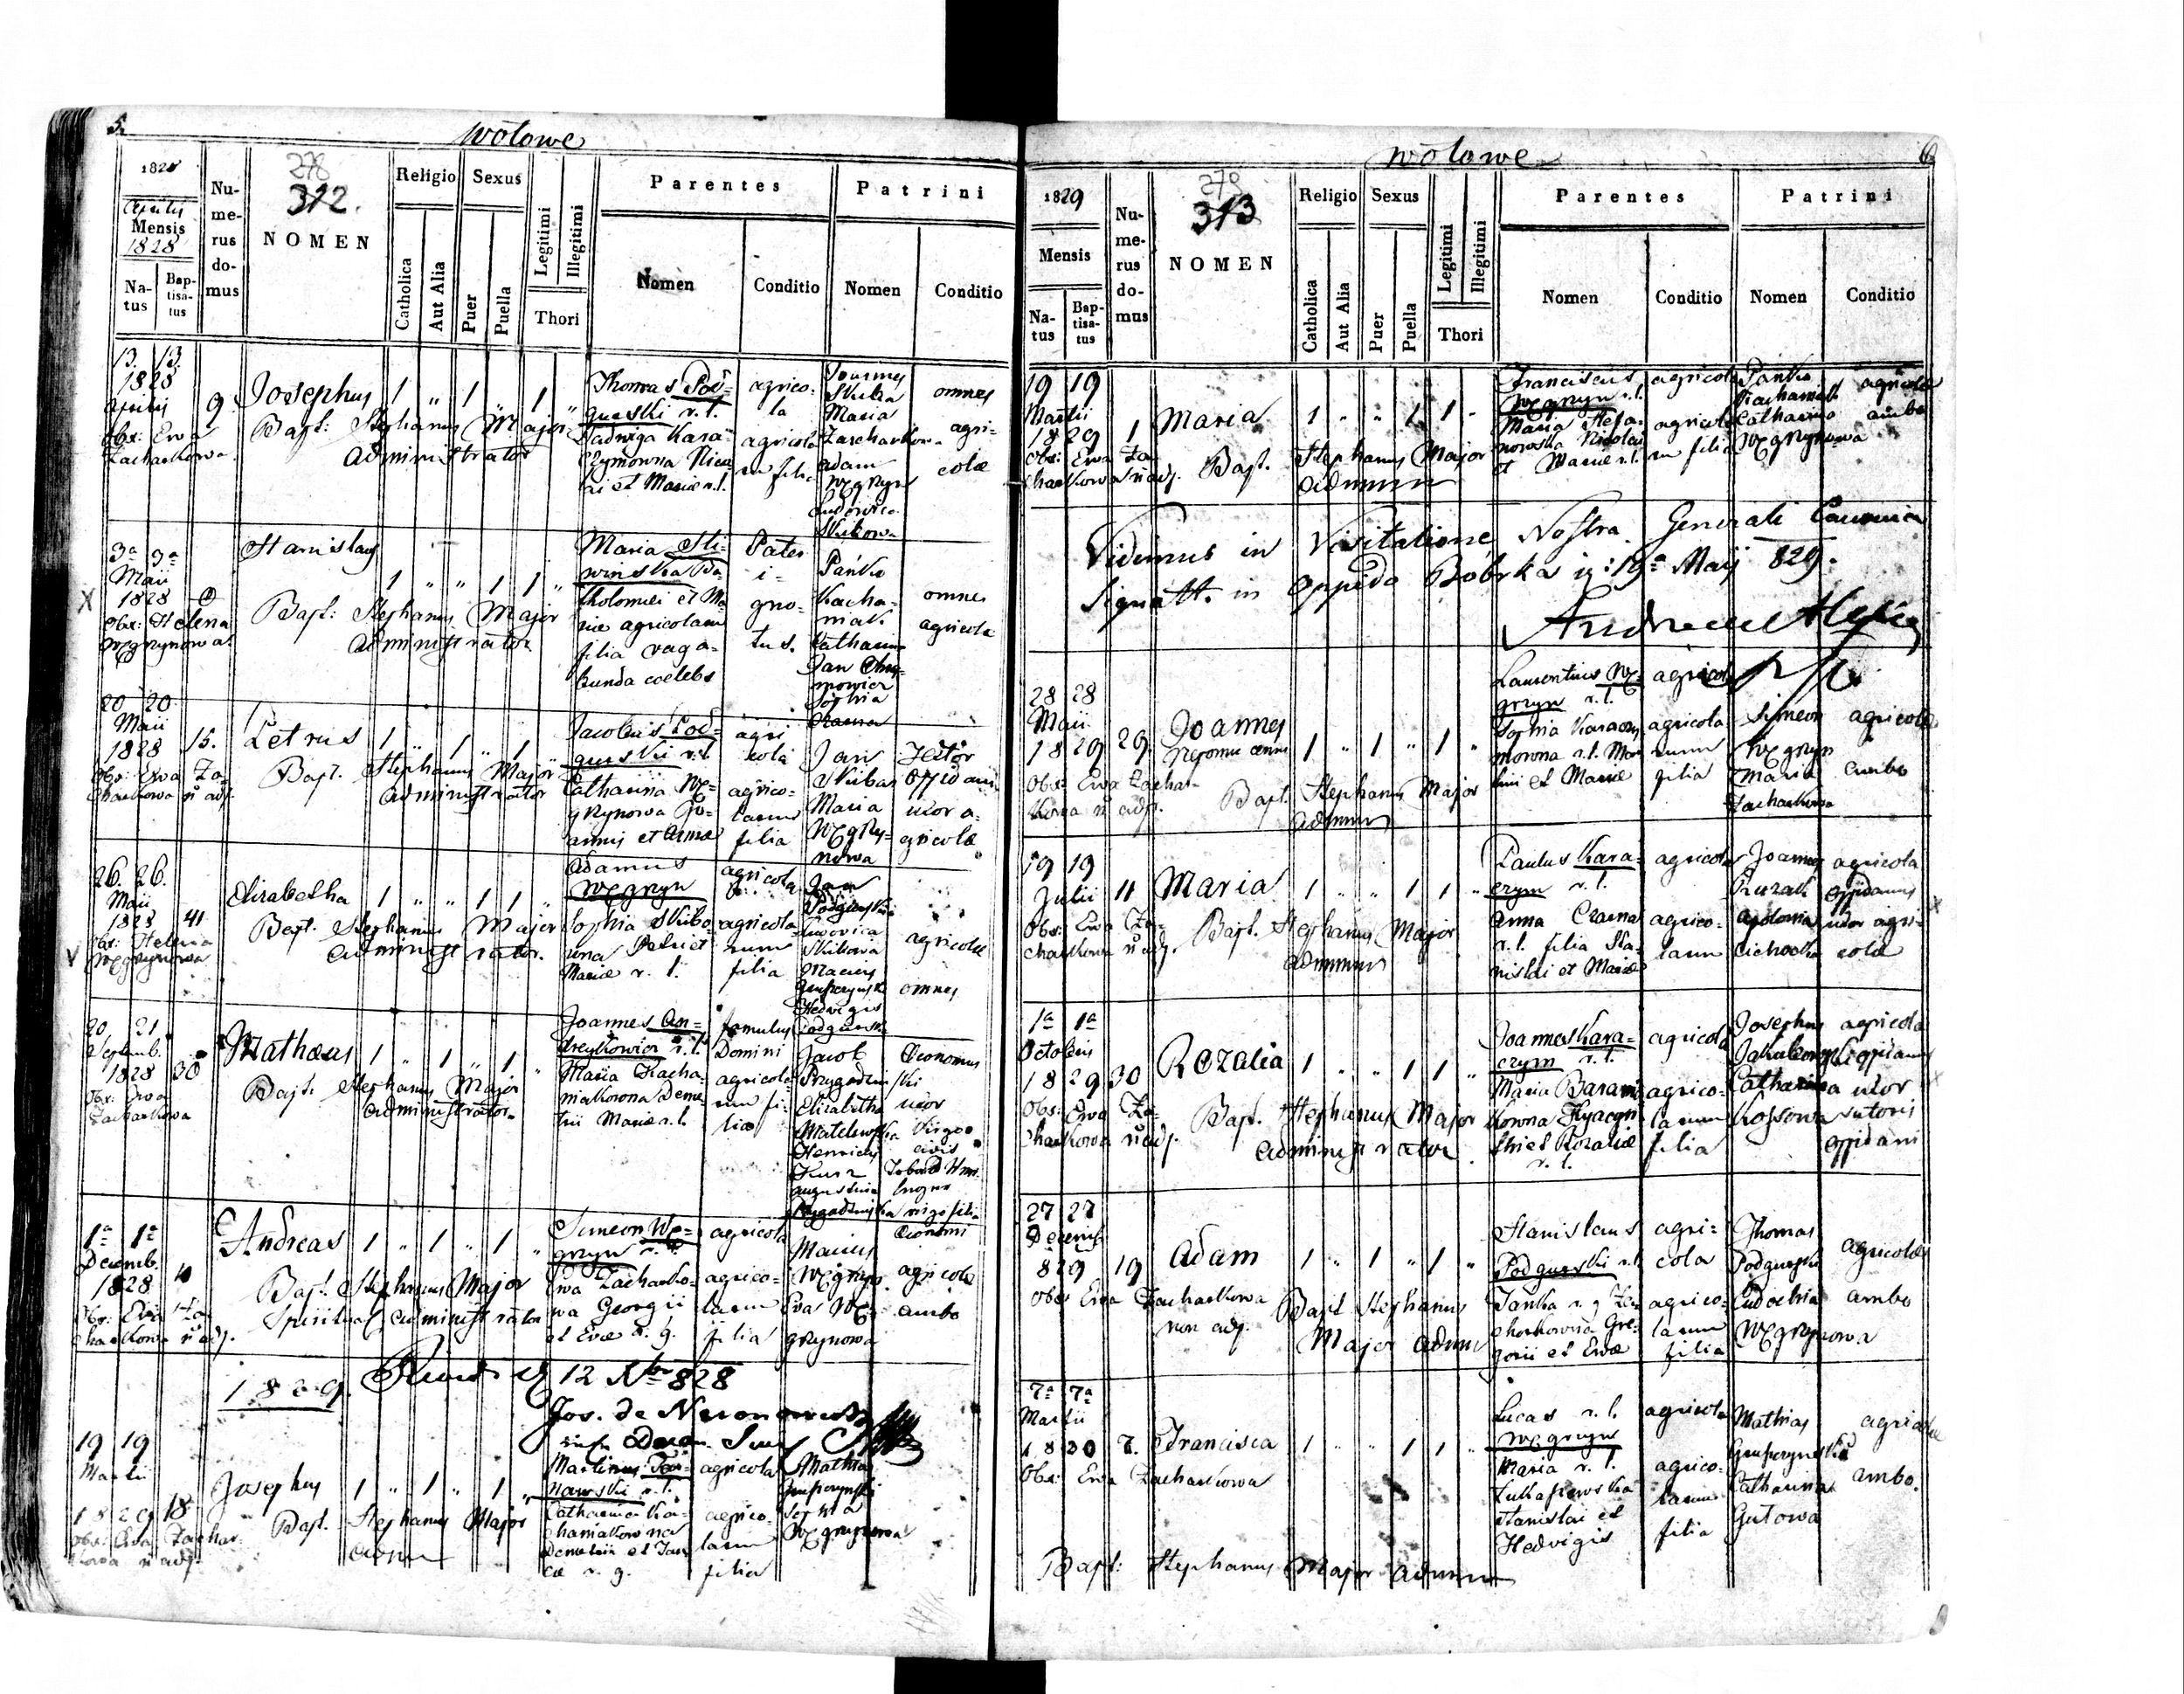 5.
Wołowe
1828
Aprilis
Mensis
1828
Na-
tus
Bap-
tisa-
tus
Nu-
me-
rus
do-
mus
278
312.
NOMEN
Religio
Catholica
Aut Alia
Sexus
Puer
Puella
Legitimi
Illegitimi
Thori
Parentes
Nomen
Conditio
Patrini
Nomen
Conditio
13. 13.
1828
Aprilis
Obs: Ewa
Zacharkowa
9
Josephus 1 " 1 " 1 "
Bapt: Stephanus Major
Administrator
Thomas Pod=
gurski r. l.
Jadwiga Kara=
czymowna Nico=
lai et Mariae r. l.
agrico=
la
agricola=
rum filia
Joannes
Skiba
Maria
Zacharkow=
Adam
Węgrzyn
Ludovica
Skibowa
omnes
agri=
colae
3a 3a
Maii
1828
Obs: Helena
Węgrzynowa
Stanislaus
1 " " 1 1 "
Bapt: Stephanus Major
Administrator
Maria Sli=
winska Ba=
tholomei et Ma=
riae agricolarum
filia vaga=
bunda coelebs
Pater
i=
gno=
tus.
Pańko
Kacha=
niak
Catharina
Jan
Sophia
Czarna
omnes
agricolae
20 20
Maii
1828
Obs: Ewa Za=
charkowa n adp.
15.
Petrus 1 " 1 " 1 "
Bapt. Stephanus Major
Administrator
Jacobus Pod=
gurski r. l.
Catharina Wę=
grzynowa Jo=
annis et Annae
agri
cola
agrico=
larum
filia
Jan
Skibas
Maria
Węgrzy=
nowa
Textor
uxor a=
gricolae
26. 26.
Maii
1828
Obs: Helena
Węgrzynowa
41
Elisabetha 1 " " 1 1 "
Bapt. Stephanus Major
Administrator.
Adamus
Węgrzyn
Sophia Skibo=
wna Petri et
Mariae r. l.
agricola
agricola=
rum
filia
Jan
Podgurski
Ludovica
Skibowa
Hedvigis
Podgurska
agricolae
omnes
20 21
Septemb.
1828
Obs: Ewa
Zacharkowa
30
Mathaeus 1 " 1 " 1 "
Bapt: Stephanus Major
Administrator
Joannes An=
dreykowicz r. l.
Maria Kacha=
niakowna Deme=
trii Mariae r. l.
famulus
Domini
agricola=
rum fi=
lia
Jacob
Przygodzin ski
Elizabetha
Matelewska
Henricus
Kurz
Augustina
Przygodzinska
Oeconomus
uxor
Virgo
civis
virgo filia
Oeconomi
1a 1a
Decemb.
1828
Obs: Ewa Za=
charkowa n adp.
Andreas 1 " 1 " 1 "
Bapt. Stephanus Major
Spiritual Administrator
Simeon Wę=
grzyn r. l.
Ewa Zacharko=
wa Georgii
et Evae r. g.
agricola
agrico=
larum
filia
Węgrzyn
Eva Wę=
grzynowa
agricolae
ambo
12 828
1829.
Jos. de
19 19
Martii
1829
Obs: Ewa Zachar=
kowa n adp.
18
Josephus 1 " 1 " 1 "
Bapt. Stephanus Major
Admin
Martinus
nawski r. l.
Catharina Ka=
chaniakowna
Demetrii et
r. g.
agricola
agrico=
larum
filia
Mathias
Sophia
Węgrzynowa
Wołowe
6
1829
Mensis
Na-
tus
Bap-
tisa-
tus
Nu-
me-
rus
do-
mus
279
313
NOMEN
Religio
Catholica
Aut Alia
Sexus
Puer
Puella
Legitimi
Illegitimi
Thori
Parentes
Nomen
Conditio
Patrini
Nomen
Conditio
19 19
Martii
1829
Obs: Ewa Za=
charkowa n adp.
1
Maria 1 " " 1 1 "
Bapt. Stephanus Major
Admin
Franciscus
Węgrzyn r. l.
Maria Stefa=
nowska Nicolai
et Mariae r. l.
agricola
agricola=
rum filia
Pańko
Kachaniak
Catharina
Węgrzynowa
agricolae
ambo
Vidimus in Visitatione Nostra Generali Canonica
Signatt. in Oppido Bóbrka d: 19a Maij 829.
28 28
Maii
1829
Obs: Ewa Zachar=
kowa n adp.
29.
Joannes
Nepomucenus 1 " 1 " 1 "
Bapt. Stephanus Major
Admin
Laurentius Wę=
grzyn r. l.
Sophia Karaczy=
mowna r. l. Mar=
tini et Mariae
agricola
agricola=
rum
filia
Simeon
Węgrzyn
Maria
Zacharkowa
agricolae
ambo
19 19
Julii
Obs: Ewa Za=
charkowa n adp.
11
Maria 1 " " 1 1 "
Bapt. Stephanus Major
Admin
Paulus Kara=
czym r. l.
Anna Czarna
r. l. filia Sta=
nislai et Mariae
agricola
agrico=
larum
Joannes
Apolonia
Cichocka
agricola
oppidanus
uxor agri=
colae
1a 1a
Octobris
1829
Obs: Ewa Za=
charkowa n adp.
30
Rozalia 1 " " 1 1 "
Bapt. Stephanus Major
Administrator
Joannes Kara=
czym r. l.
Maria Barani=
kowna Hyacyn=
thi et Rozaliae
r. l.
agricola
agrico=
larum
filia
Josephus
Catharina
Kossowa
agricola
oppidanus
uxor
sutoris
oppidani
27 27
Decemb.
829
Obs: Ewa Zacharkowa
non adp.
19
Adam 1 " 1 " 1 "
Bapt Stephanus
Major Admin
Stanislaus
Podgurski r. l.
Janka r. g. Za=
charkowna Gre=
gorii et Evae
agri=
cola
agrico=
larum
filia
Thomas
Podgurski
Eudochia
Węgrzynowa
agricolae
ambo
7a 7a
Martii
1830
Obs: Ewa Zacharkowa
7.
Francisca 1 " " 1 1 "
Lucas r. l.
Węgrzyn
Maria r. l.
Stanislai et
Hedvigis
agricola
agrico=
larum
filia
Mathias
Catharina
Gutowa
agricolae
ambo.
Bapt: Stephanus Major Admin